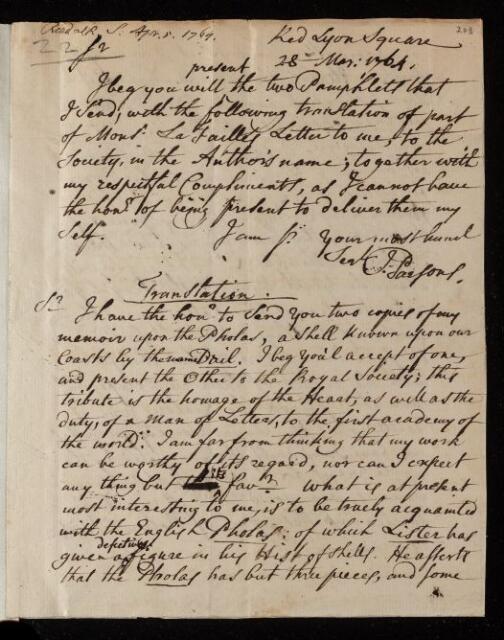 Read at R. S. Apr. 5. 1764.
203
22
Sr
Red Lyon Square
28th Mar: 1764.
present
I beg you will the two Pamphlets that
I Send, with the following translation of part
of Monsr. La Faille's Letter to me, to the
Society, in the Author's name; together with
my respectful Compliments, as I cannot have
the honr. of being present to deliver them my
Self. I am Sr. your most humle
Servt. J. Parsons.
Translation.
Sr.
I have the honr. to Send You two copies of my
memoir upon the Pholas, a Shell known upon our
Coasts by the name Dail. I beg you'l accept of one,
and present the Other to the Royal Society; this
tribute is the homage of the Heart, as well as the
duty, of a Man of Letters, to the first academy of
the world. I am far from thinking that my work
can be worthy of its regard, nor can I expect
any thing but its favr. what is at present
most interesting to me, is to be truly acquainted
with the English Pholas: of which Lister has
given a defective figure in his Hist. of Shells. He asserts
that the Pholas has but three pieces, and some